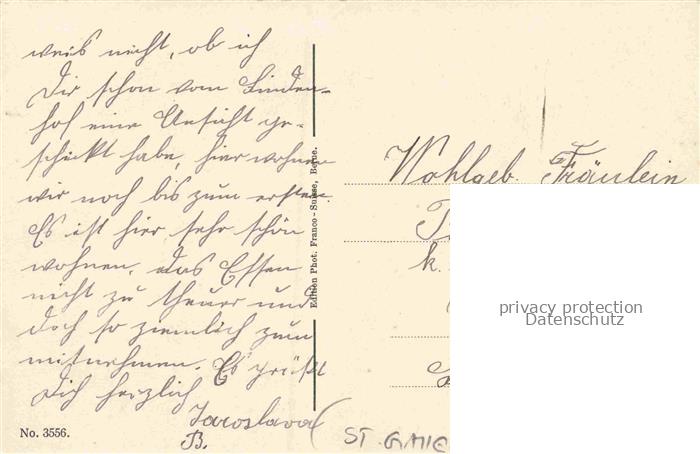 weis nicht, ob ich
Dir schon vom Linden-
hof eine Ansicht ge-
schickt habe, hier wohnen
wir noch bis zum ersten.
Es ist hier sehr schön
wohnen, das Essen
nicht zu theuer und
doch so ziemlich zum
mitnehmen. Es grüßt
Dich herzlich
Jaroslava
B.
No. 3556.
Edition Phot. Franco-Suisse, Berne.
Wohlgeb. Fräulein
k.
privacy protection
Datenschutz
ST. GALLE